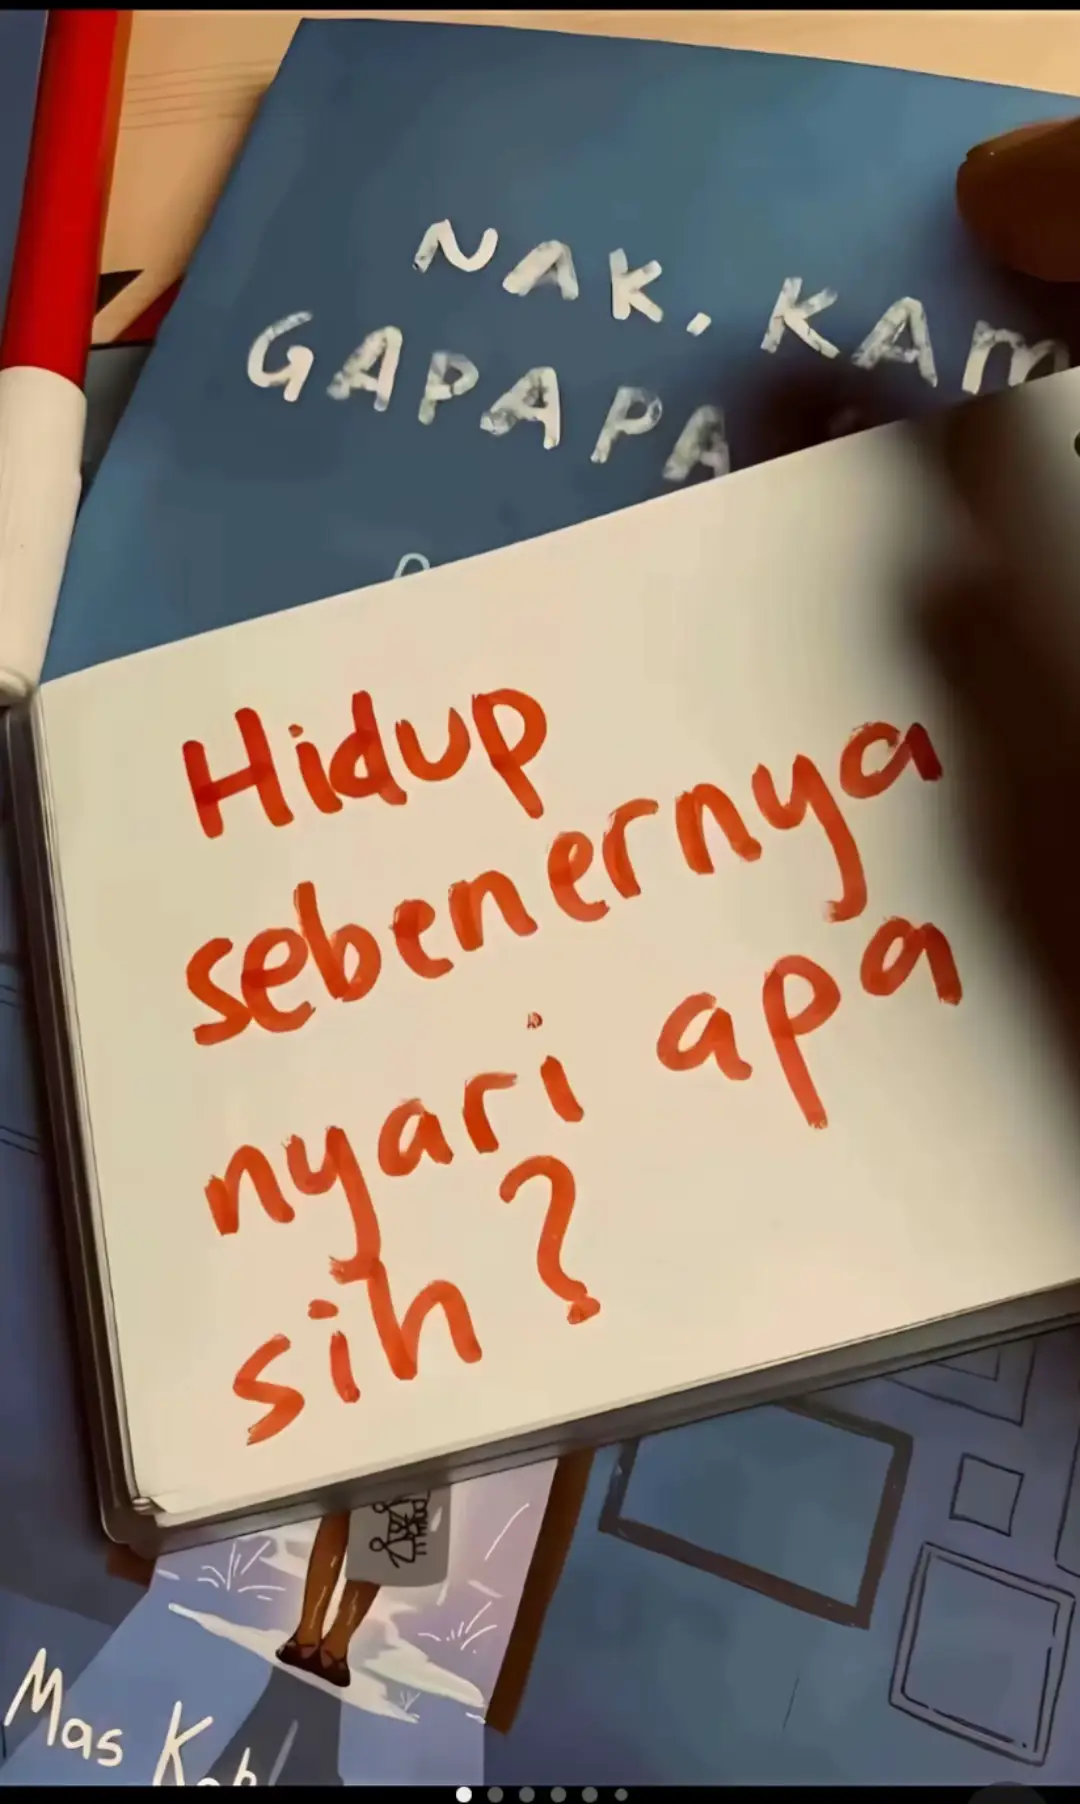 NAK, KAM
GAPAPA
Hidup
sebenernya
nyari apa
sih?
Mas